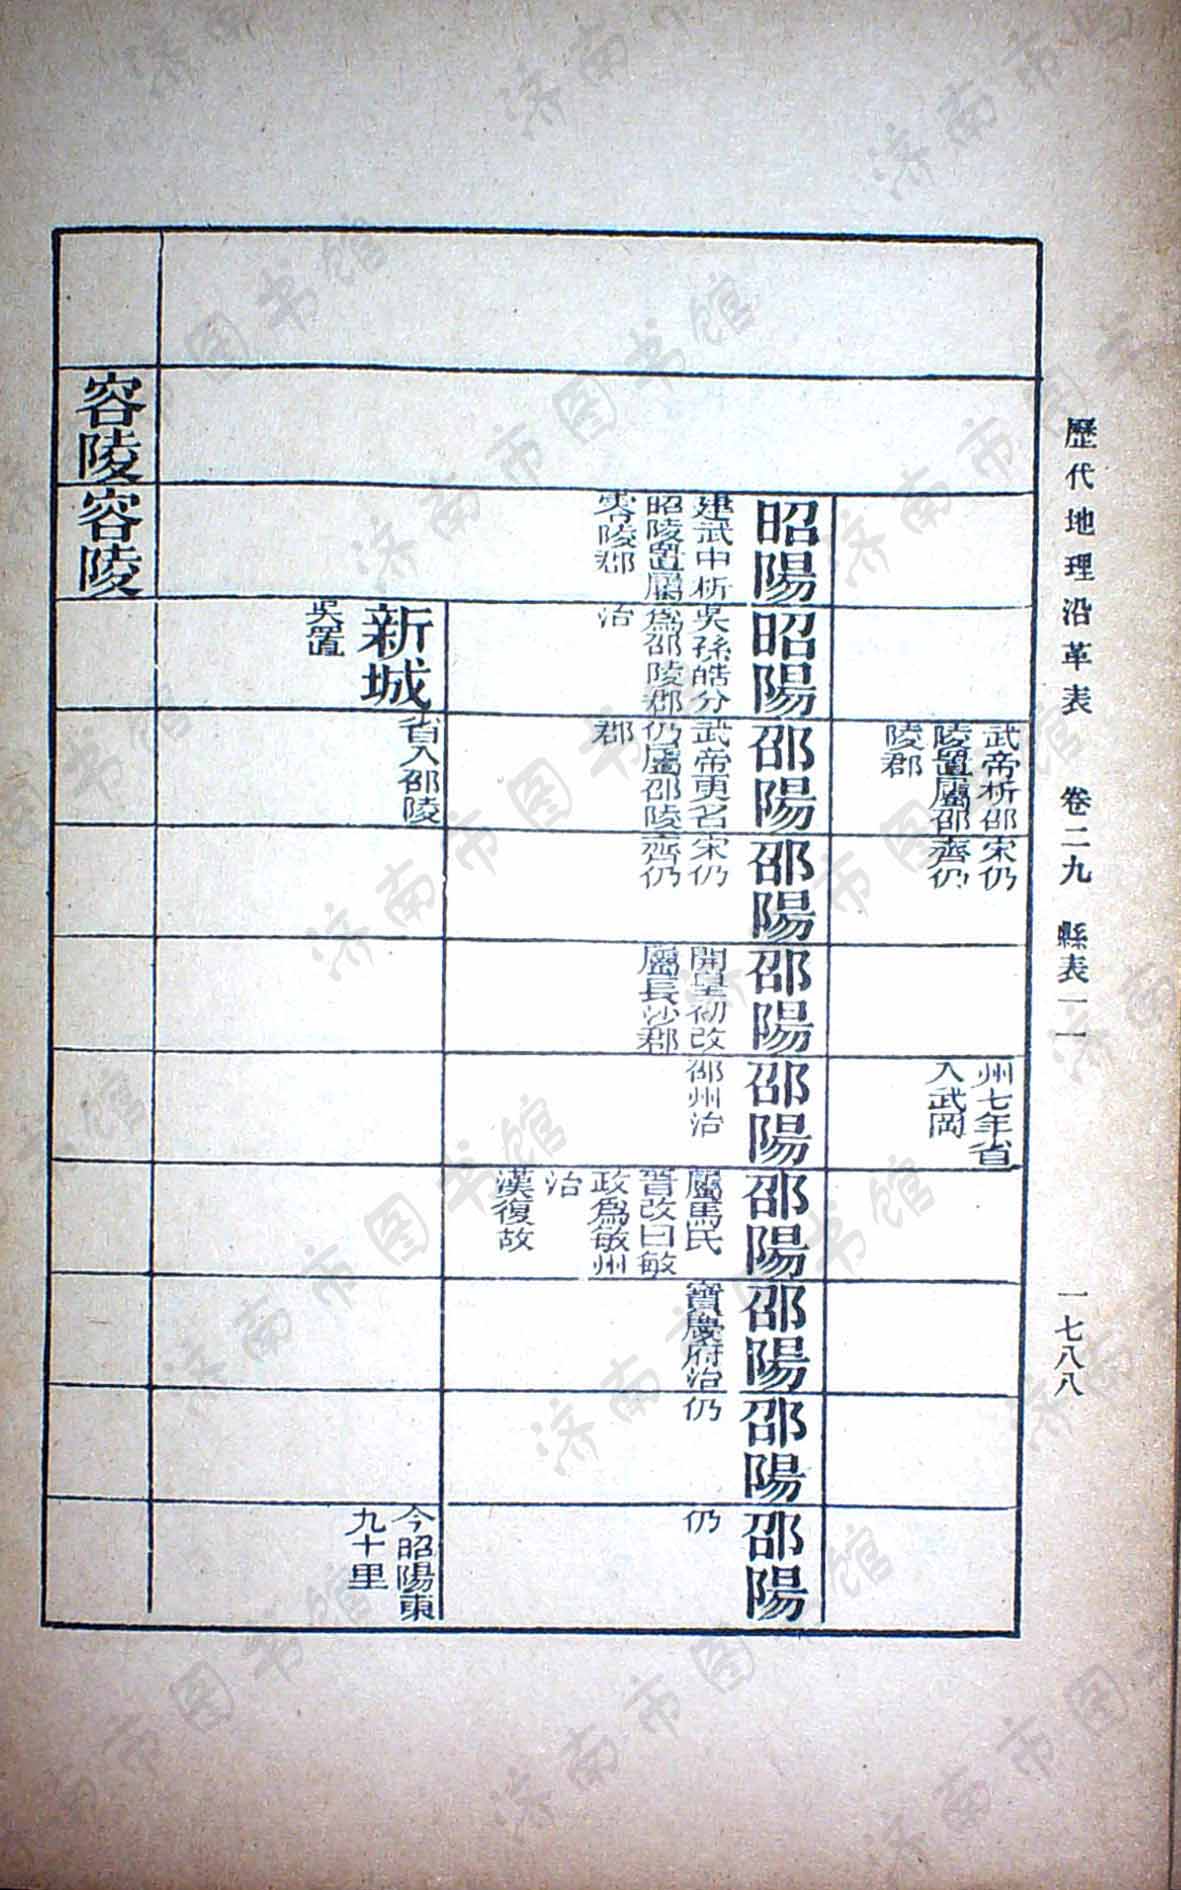 歷代地理沿革表　卷二九　縣表一一　一七八八
武帝析邵
陵置屬邵
陵郡
宋仍
齊仍
州七年省
入武岡
昭陽
建武中析
昭陵置屬
零陵郡
昭陽
吳孫皓分
爲邵陵郡
治
邵陽
武帝更名
仍屬邵陵
郡
邵陽
宋仍
齊仍
邵陽
開皇初改
屬長沙郡
邵陽
邵州治
邵陽
屬馬氏
晉改曰敏
政爲敏州
治
漢復故
邵陽
寶慶府治
邵陽
仍
邵陽
仍
新城
吳置
省入邵陵
今昭陽東
九十里
容陵
容陵
济南市图书馆